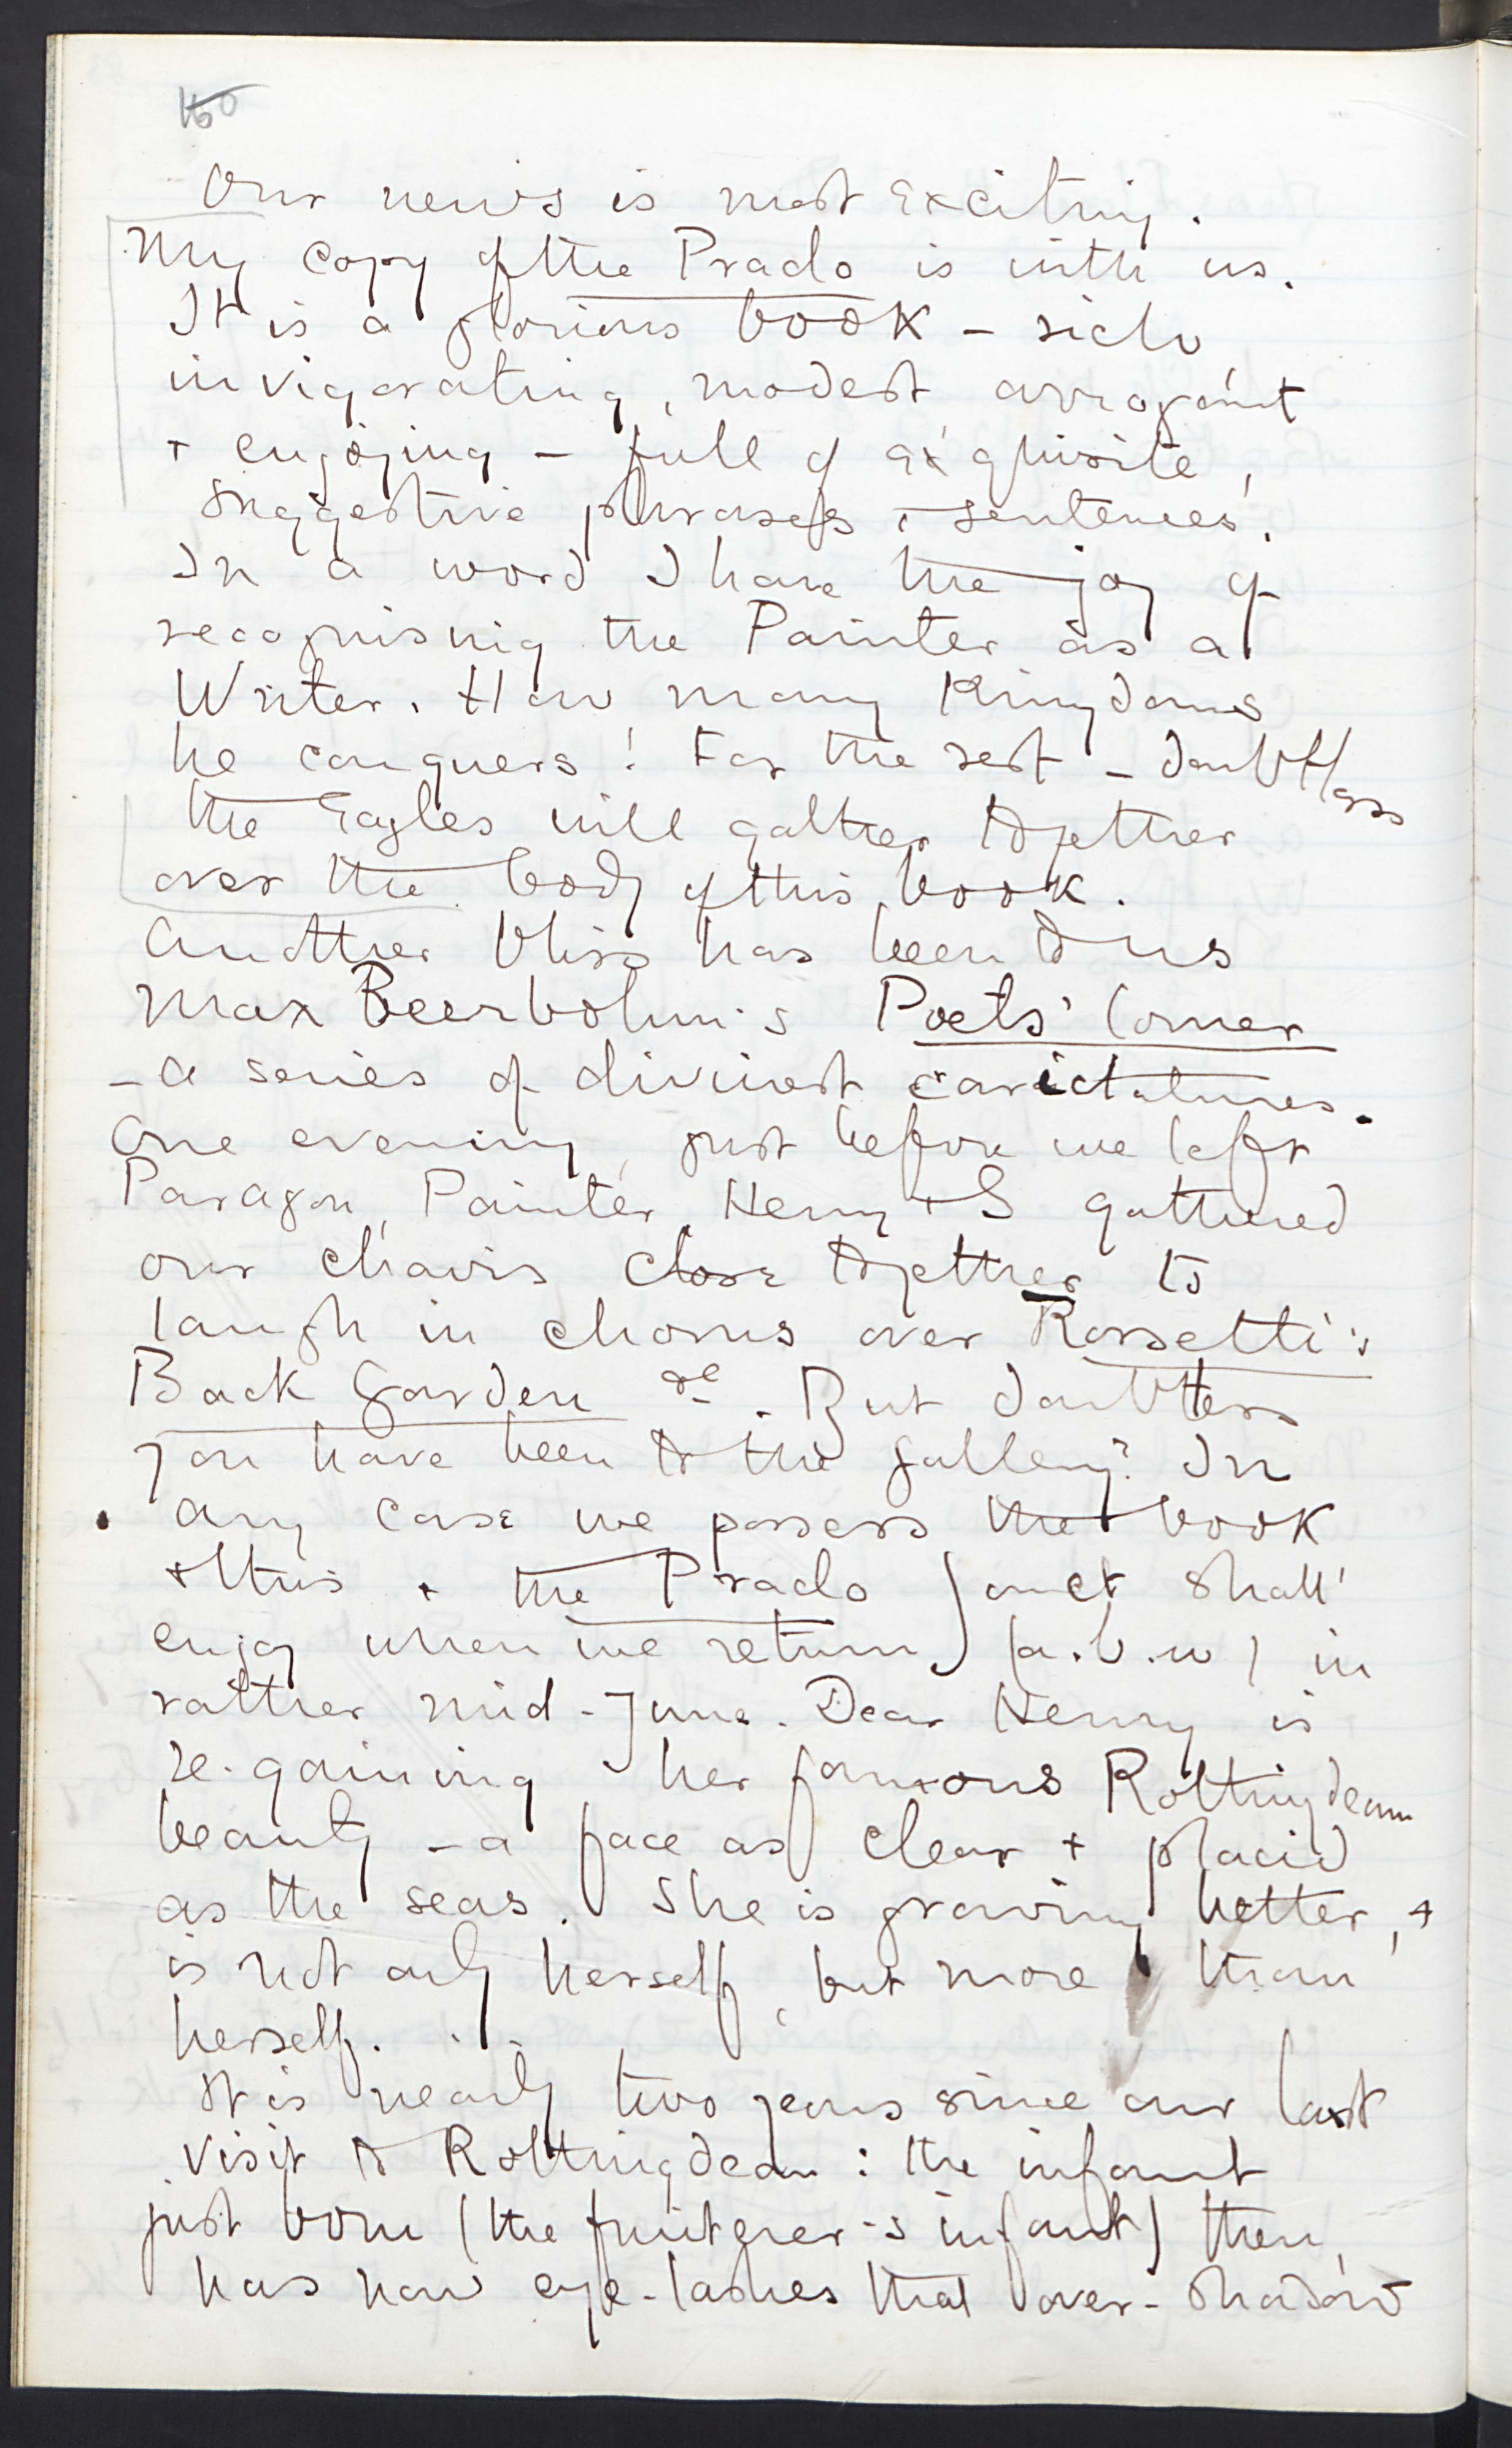 160
Our news is most exciting.
My copy of the Prado is with us.
It is a glorious book – rich
invigorating, modest arrogant
+ enjoying – full of exquisite,
suggestive phrases + sentences.
In a word I have the joy of
recognising the Painter as a
Writer. How many Kingdoms
he conquers! For the rest – doubtless
the Eagles will gather together
over the body of this book.
Another bliss has been to us
Max Beerbohm's Poets' Corner
– a series of divinest carictatures.
One evening, just before we left
Paragon, Painter, Henry + I gathered
our chairs close together to
laugh in chorus over Rossetti's
Back Garden &c. But doubtless
you have been to the gallery? In
any case we possess the book
+ this + the Prado shall
enjoy when we return (a.b.w) in
rather mid-June. Dear Henry is
re-gaining her famous Rottingdean
beauty – a face as clear + placid
as the seas. She is growing better, +
is not only herself, but more than
herself. . .
It is nearly two years since our last
visit to Rottingdean: the infant
just born (the fruiterer's infant) then,
has now eye-lashes that over-shadow